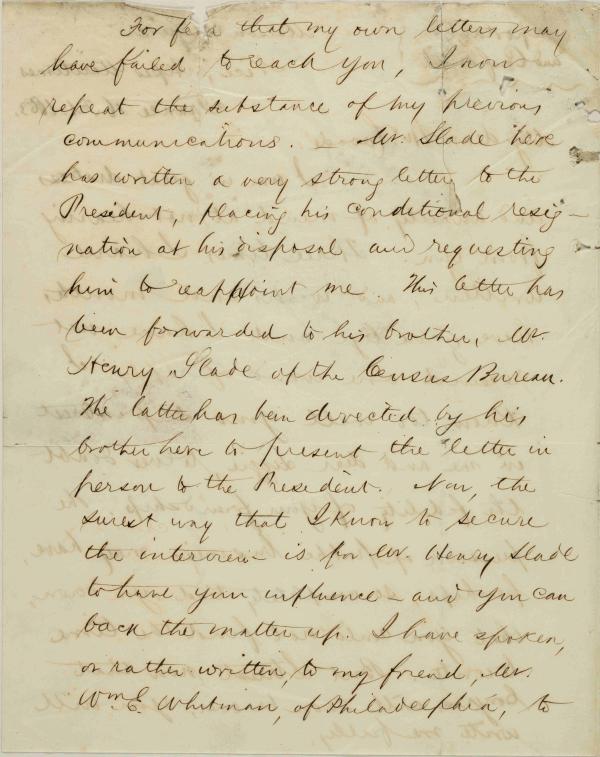 For fear that my own letters may
have failed to reach you, I now
repeat the substance of my previous
communications. – Mr. Slade here
has written a very strong letter to the
President, placing his conditional resig-
nation at his disposal and requesting
him to reappoint me. This letter has
been forwarded to his brother, Mr.
Henry Slade of the Census Bureau.
The latter has been directed by his
brother here to present the letter in
person to the President. Now, the
surest way that I know to secure
the interview – is for Mr. Henry Slade
to have your influence – and you can
back the matter up. I have spoken,
or rather written, to my friend, Mr.
Wm. E. Whitman, of Philadelphia, to